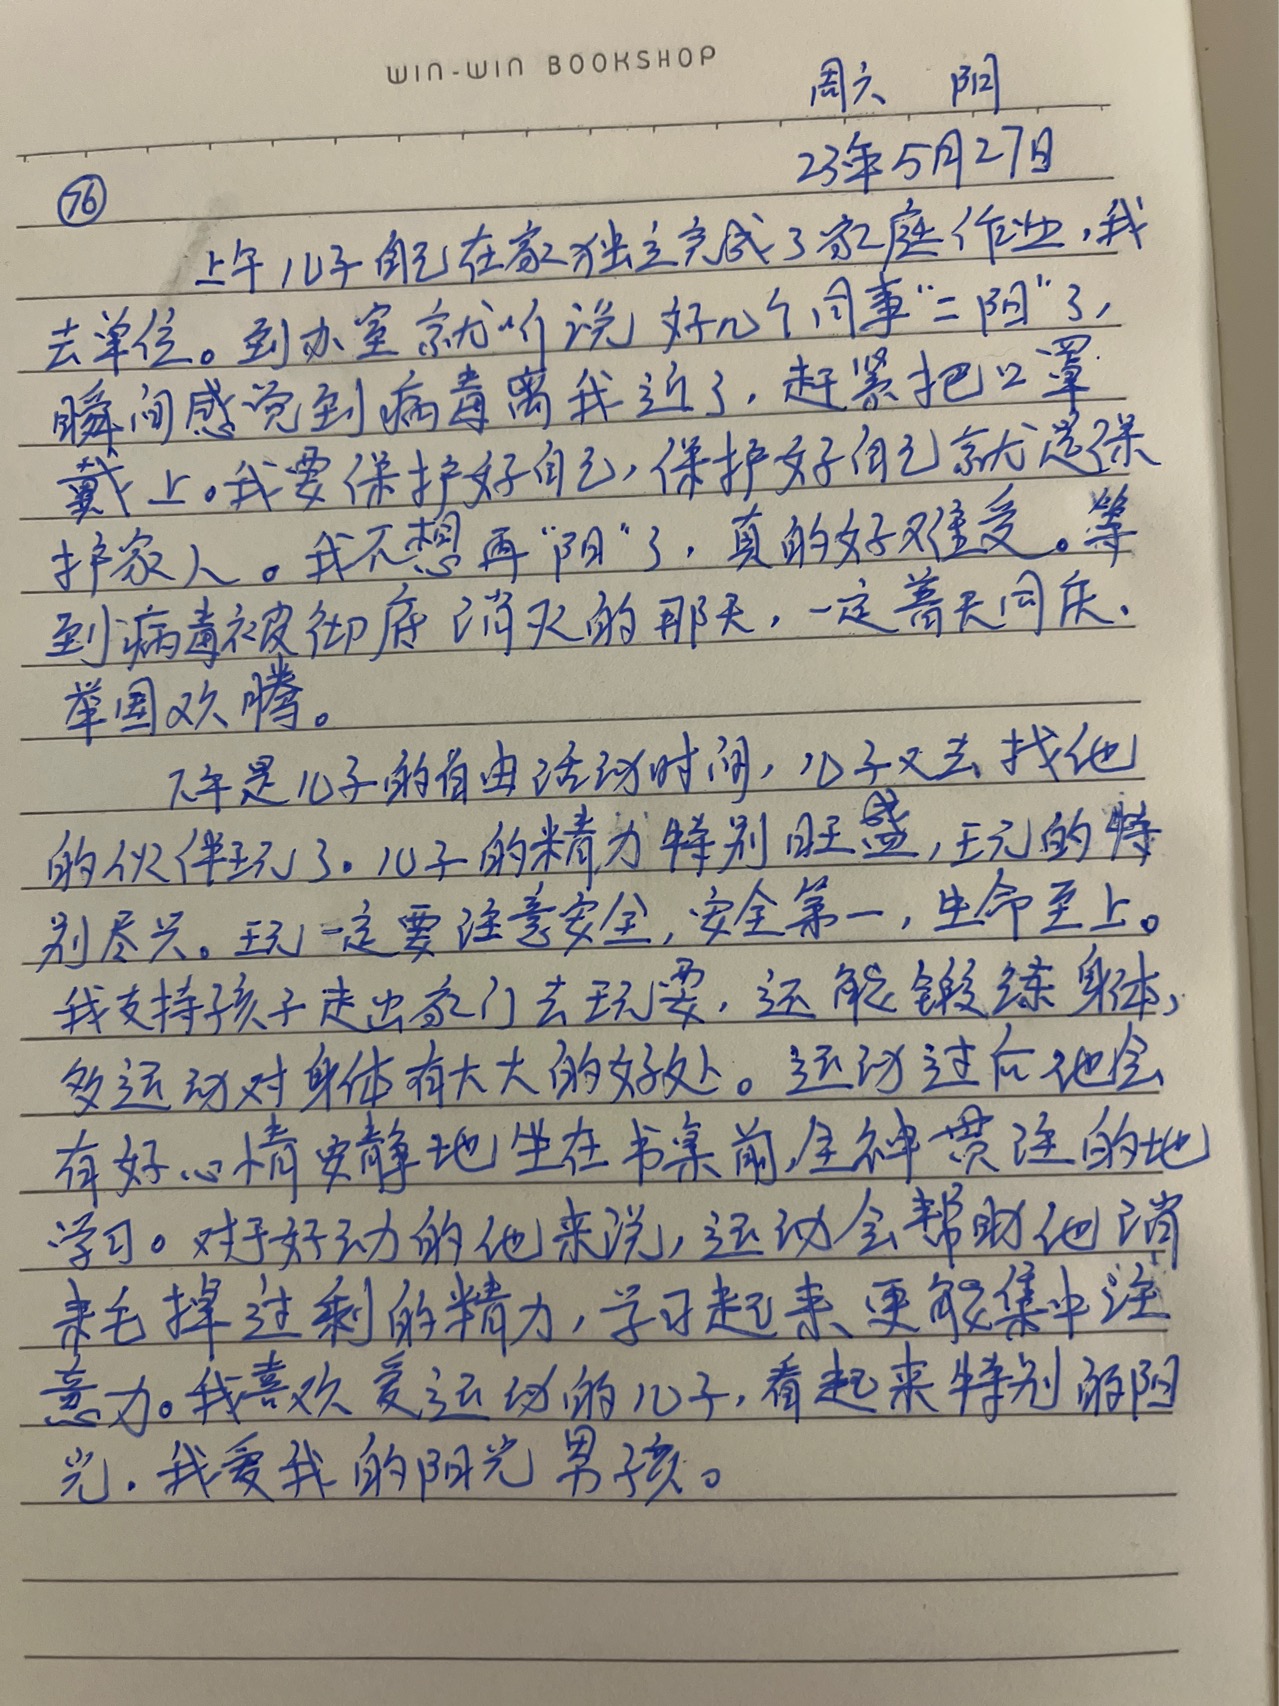 WIN-WIN BOOKSHOP
周六 阳
23年5月27日
76
上午儿子自己在家独立完成了家庭作业,我
去单位。到办室就听说好几个同事“二阳”了,
瞬间感觉到病毒离我近了,赶紧把口罩
戴上。我要保护好自己,保护好自己就是保
护家人。我不想再“阳”了,真的好难受。等
到病毒被彻底消灭的那天,一定普天同庆.
举国欢腾。
下午是儿子的自由活动时间,儿子又去找他
的伙伴玩了.儿子的精力特别旺盛,玩的特
别尽兴。玩一定要注意安全,安全第一,生命至上。
我支持孩子走出家门去玩耍,还能锻练身体,
多运动对身体有大大的好处。运动过后他会
有好心情安静地坐在书桌前,全神贯注的地
学习。对于好动的他来说,运动会帮助他消
耗掉过剩的精力,学习起来更能集中注
意力。我喜欢爱运动的儿子,看起来特别的阳
光.我爱我的阳光男孩。